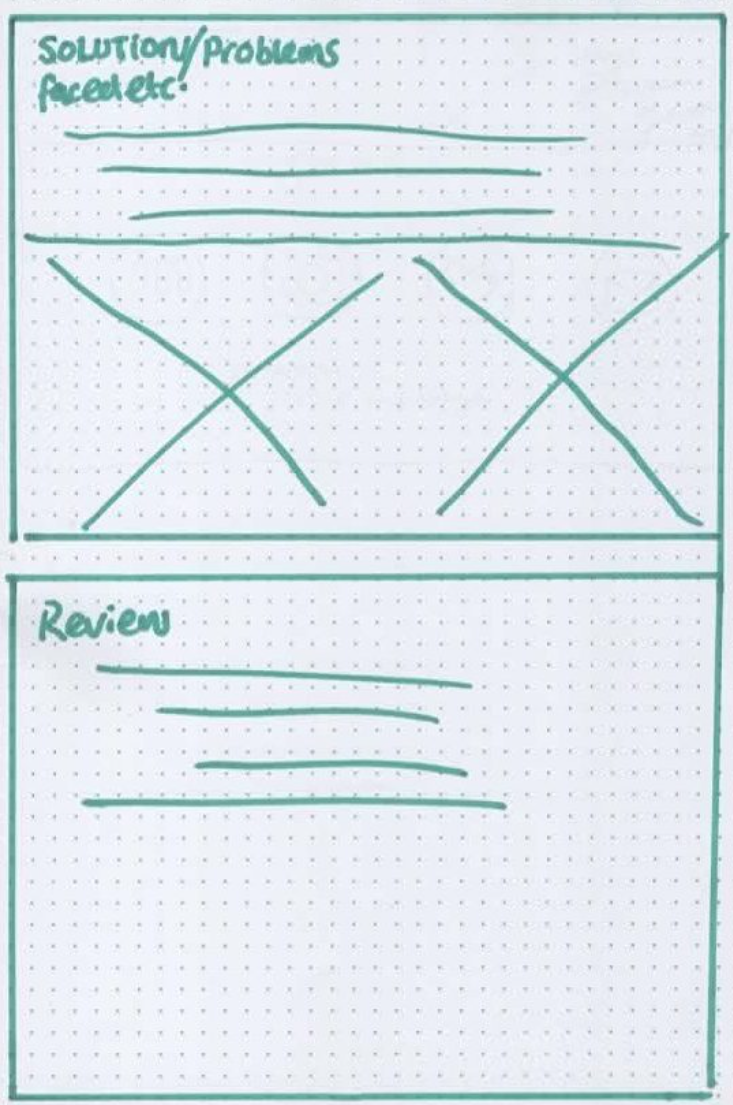 SOLUTION/Problems
faced etc.
Review